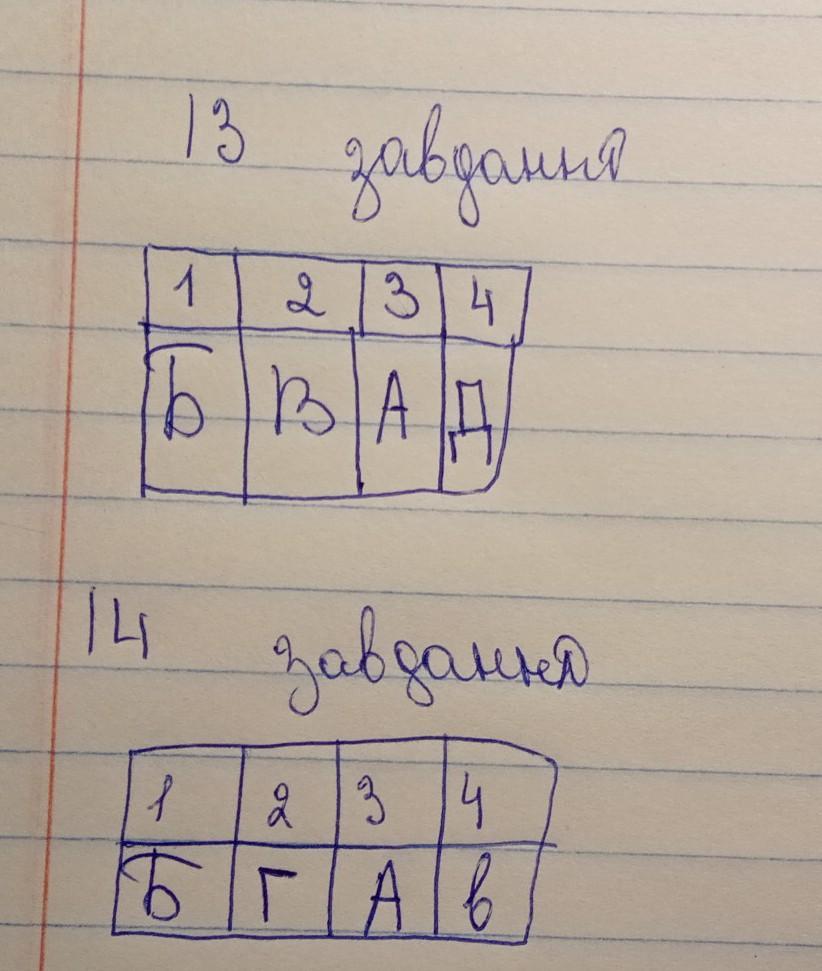 13 завдання
1 2 3 4
Б В А Д
14 завдання
1 2 3 4
Б Г А в